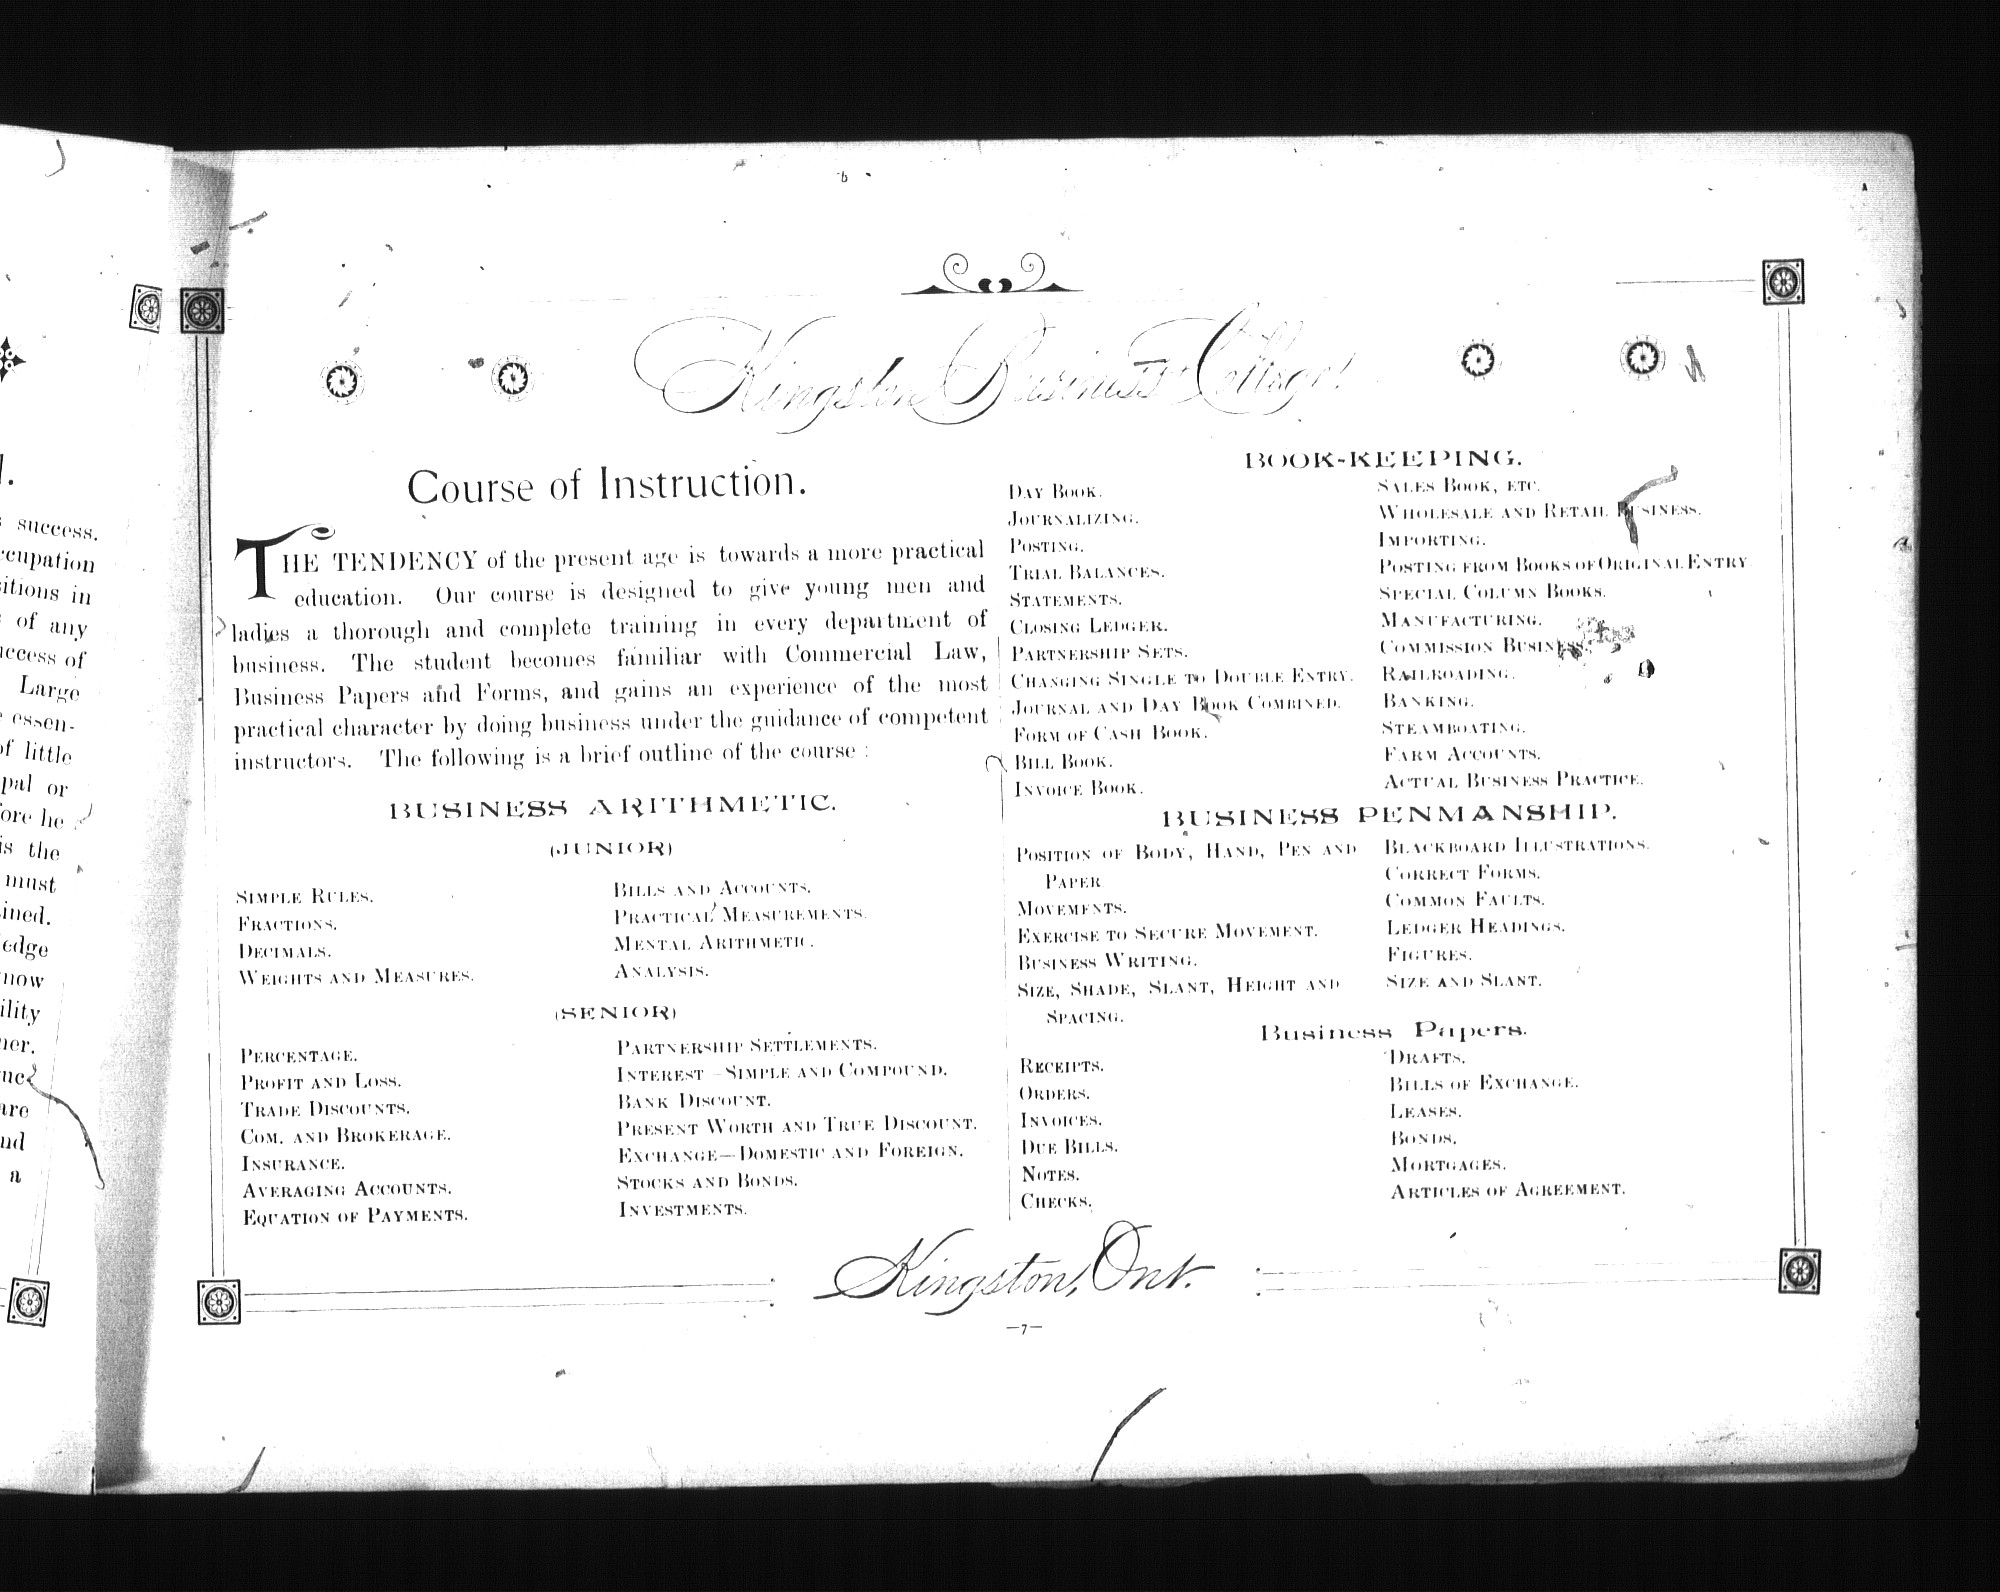 Kingston Business College!
Course of Instruction.
THE TENDENCY of the present age is towards a more practical
education. Our course is designed to give young men and
ladies a thorough and complete training in every department of
business. The student becomes familiar with Commercial Law,
Business Papers and Forms, and gains an experience of the most
practical character by doing business under the guidance of competent
instructors. The following is a brief outline of the course :
BUSINESS ARITHMETIC.
(JUNIOR)
SIMPLE RULES.
FRACTIONS.
DECIMALS.
WEIGHTS AND MEASURES.
BILLS AND ACCOUNTS.
PRACTICAL MEASUREMENTS.
MENTAL ARITHMETIC.
ANALYSIS.
(SENIOR)
PERCENTAGE.
PROFIT AND LOSS.
TRADE DISCOUNTS.
COM. AND BROKERAGE.
INSURANCE.
AVERAGING ACCOUNTS.
EQUATION OF PAYMENTS.
PARTNERSHIP SETTLEMENTS.
INTEREST—SIMPLE AND COMPOUND.
BANK DISCOUNT.
PRESENT WORTH AND TRUE DISCOUNT.
EXCHANGE—DOMESTIC AND FOREIGN.
STOCKS AND BONDS.
INVESTMENTS.
BOOK-KEEPING.
DAY BOOK.
JOURNALIZING.
POSTING.
TRIAL BALANCES.
STATEMENTS.
CLOSING LEDGER.
PARTNERSHIP SETS.
CHANGING SINGLE TO DOUBLE ENTRY.
JOURNAL AND DAY BOOK COMBINED.
FORM OF CASH BOOK.
BILL BOOK.
INVOICE BOOK.
SALES BOOK, ETC.
WHOLESALE AND RETAIL BUSINESS.
IMPORTING.
POSTING FROM BOOKS OF ORIGINAL ENTRY.
SPECIAL COLUMN BOOKS.
MANUFACTURING.
COMMISSION BUSINESS.
RAILROADING.
BANKING.
STEAMBOATING.
FARM ACCOUNTS.
ACTUAL BUSINESS PRACTICE.
BUSINESS PENMANSHIP.
POSITION OF BODY, HAND, PEN AND
PAPER
MOVEMENTS.
EXERCISE TO SECURE MOVEMENT.
BUSINESS WRITING.
SIZE, SHADE, SLANT, HEIGHT AND
SPACING.
BLACKBOARD ILLUSTRATIONS.
CORRECT FORMS.
COMMON FAULTS.
LEDGER HEADINGS.
FIGURES.
SIZE AND SLANT.
Business Papers.
RECEIPTS.
ORDERS.
INVOICES.
DUE BILLS.
NOTES.
CHECKS.
DRAFTS.
BILLS OF EXCHANGE.
LEASES.
BONDS.
MORTGAGES.
ARTICLES OF AGREEMENT.
Kingston, Ont.
—7—
success.
of any
Large
of little
or
he
is the
must
now
are
a